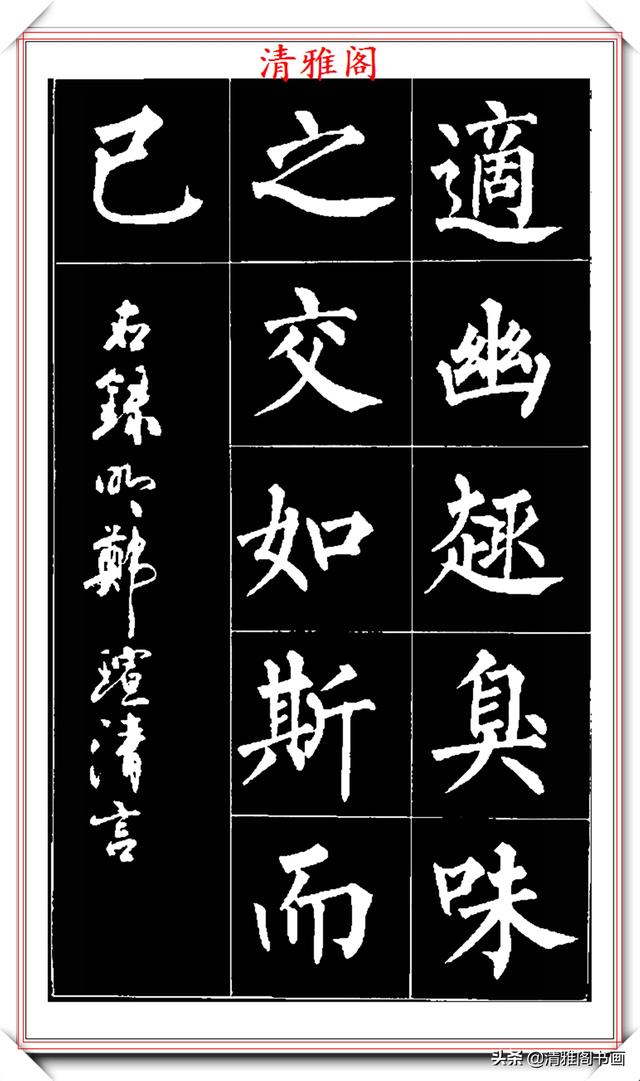 清雅阁
適幽趣臭味
之交如斯而
已
右録明鄭瑄清言
头条@清雅阁书画